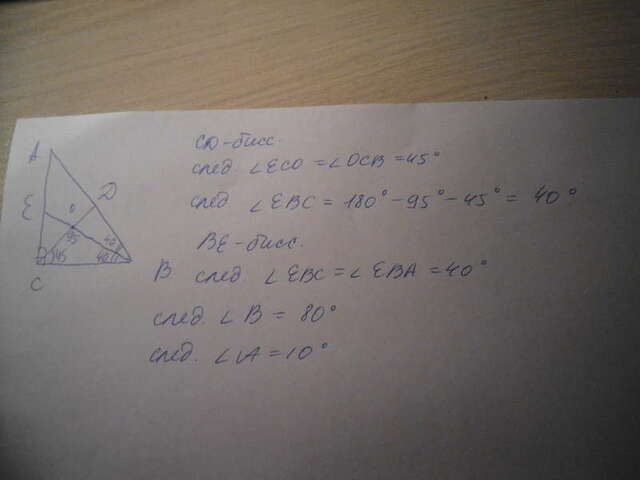 A
E
D
O
95
45
40
40
C
B
CD-бисс.
след. ∠ECO = ∠OCB = 45°
след ∠EBC = 180° - 95° - 45° = 40°
BE-бисс.
след. ∠EBC = ∠EBA = 40°
след. ∠B = 80°
след. ∠A = 10°